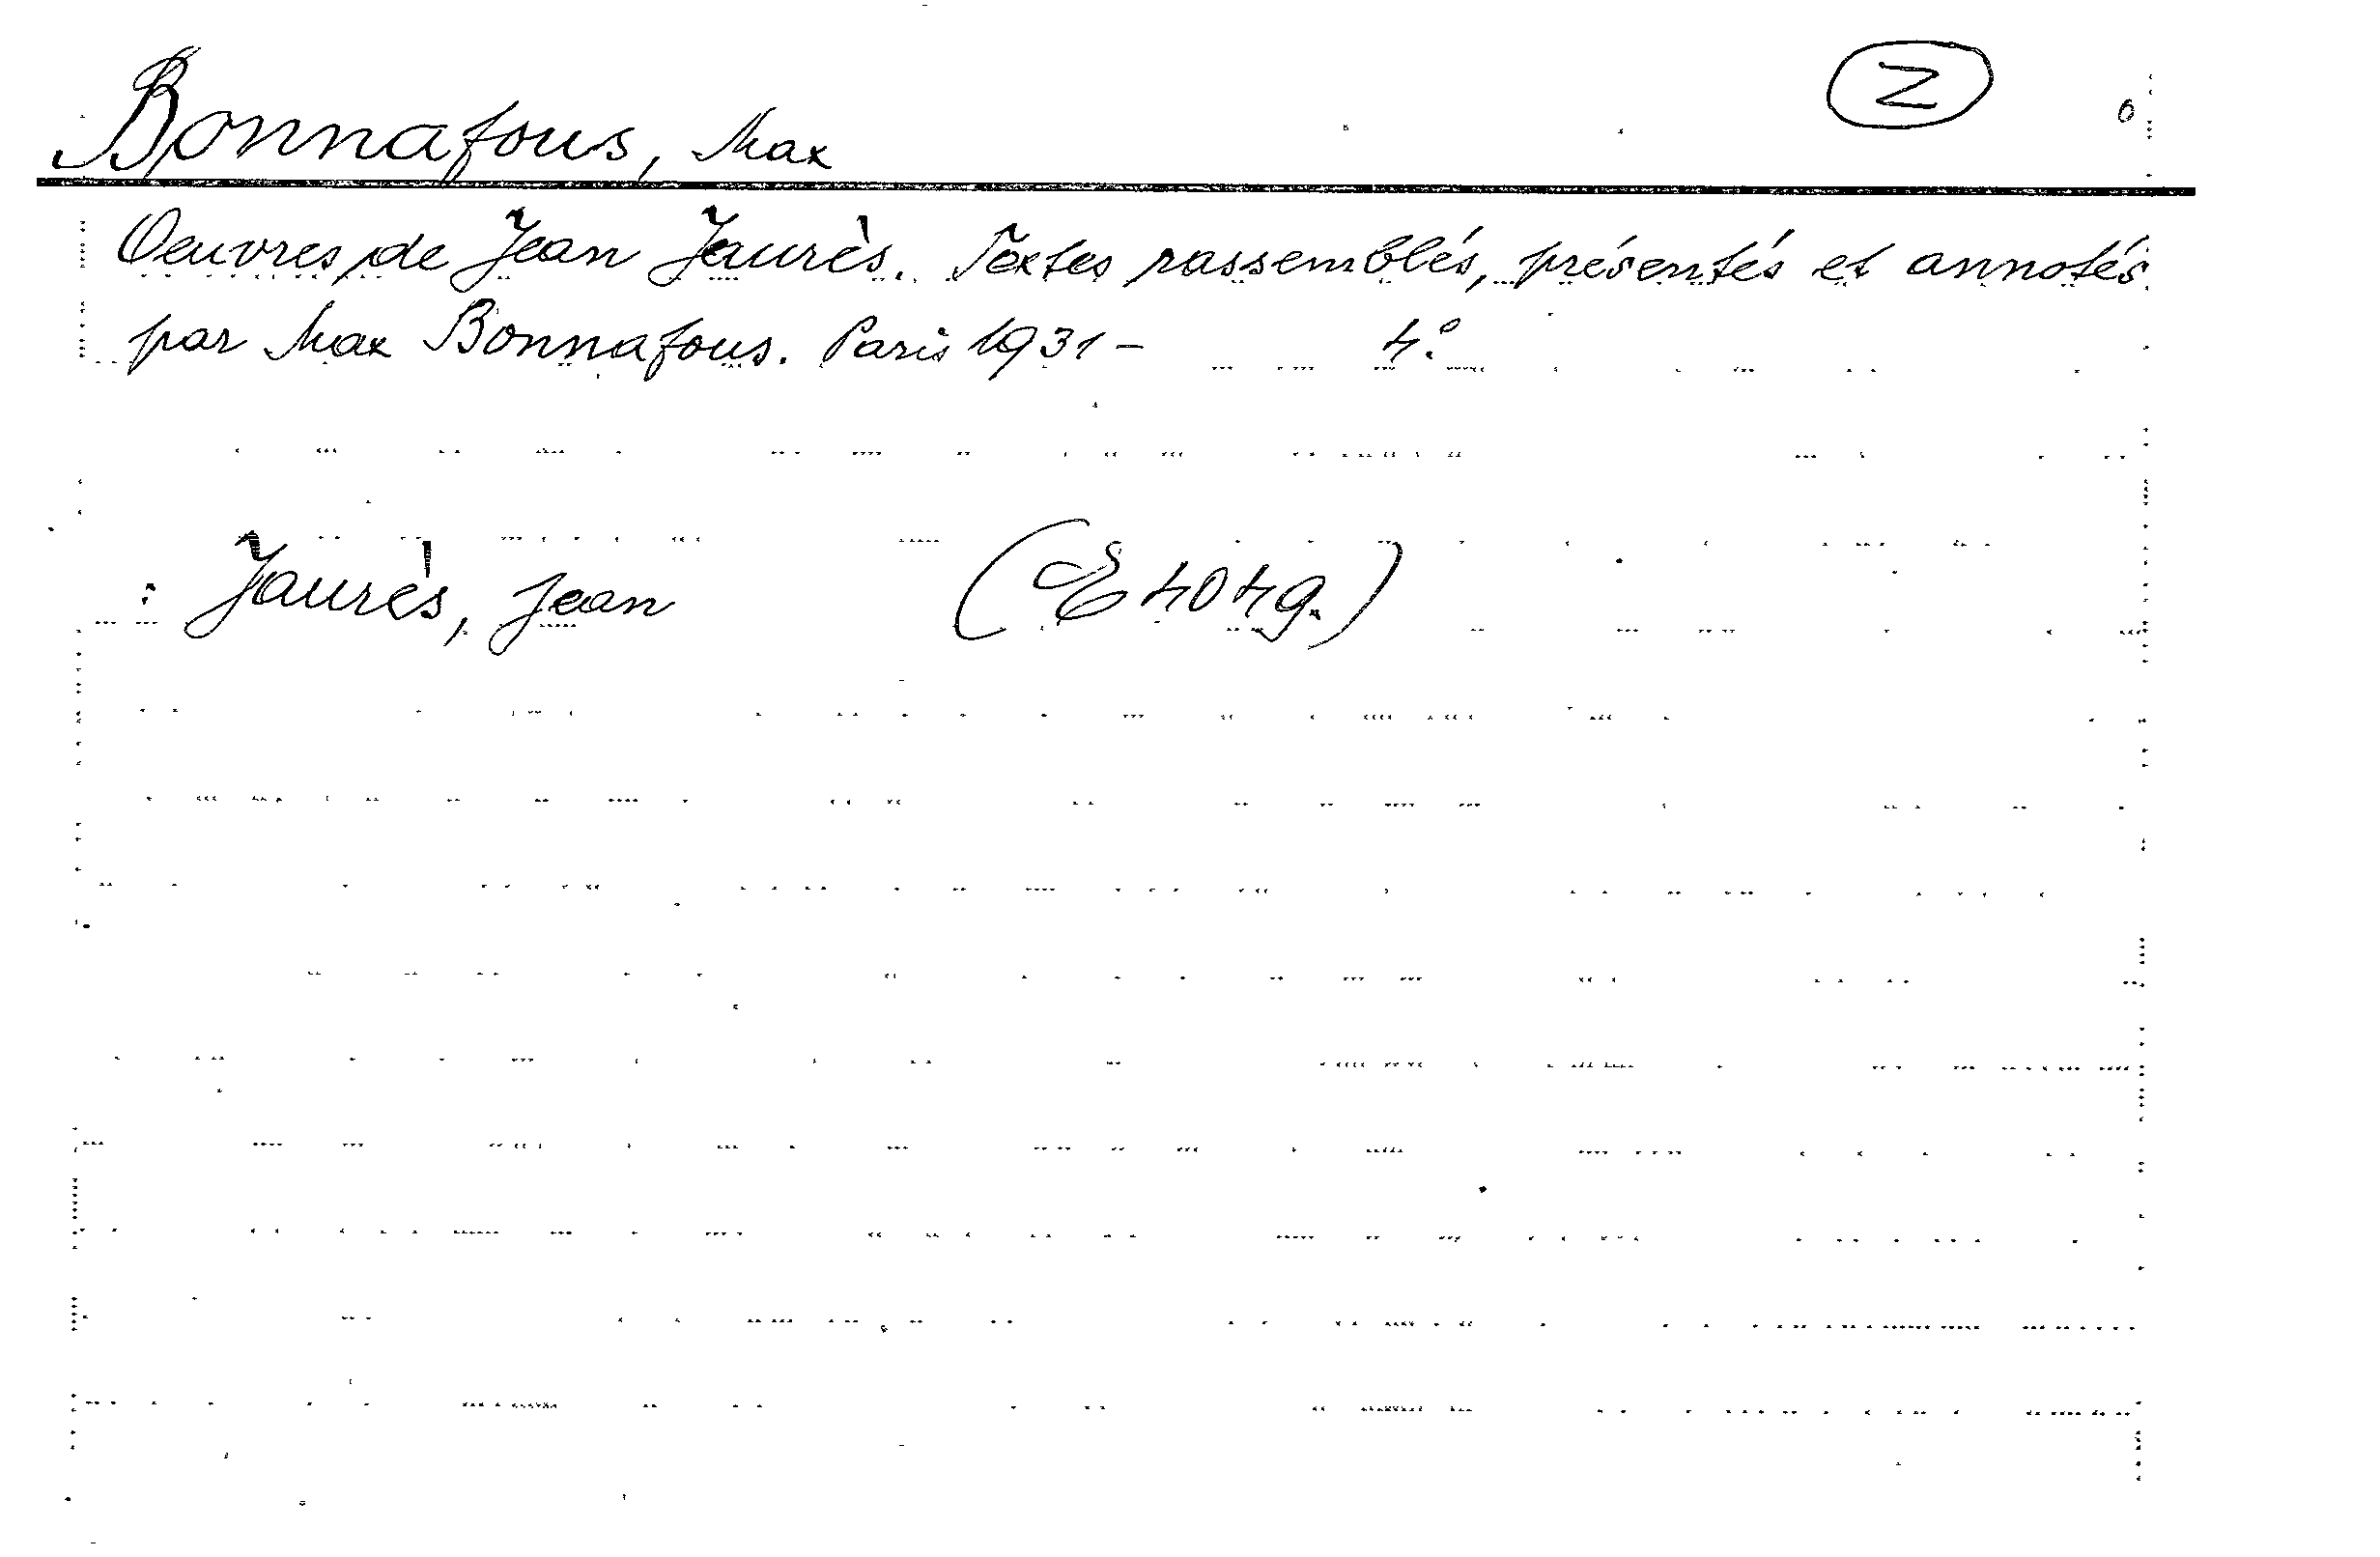 Bonnafous, Max
Z
Oeuvres de Jean Jaurès. Textes rassemblés, présentés et annotés
par Max Bonnafous. Paris 1931- 4°.
: Jaurès, Jean (E 4049.)